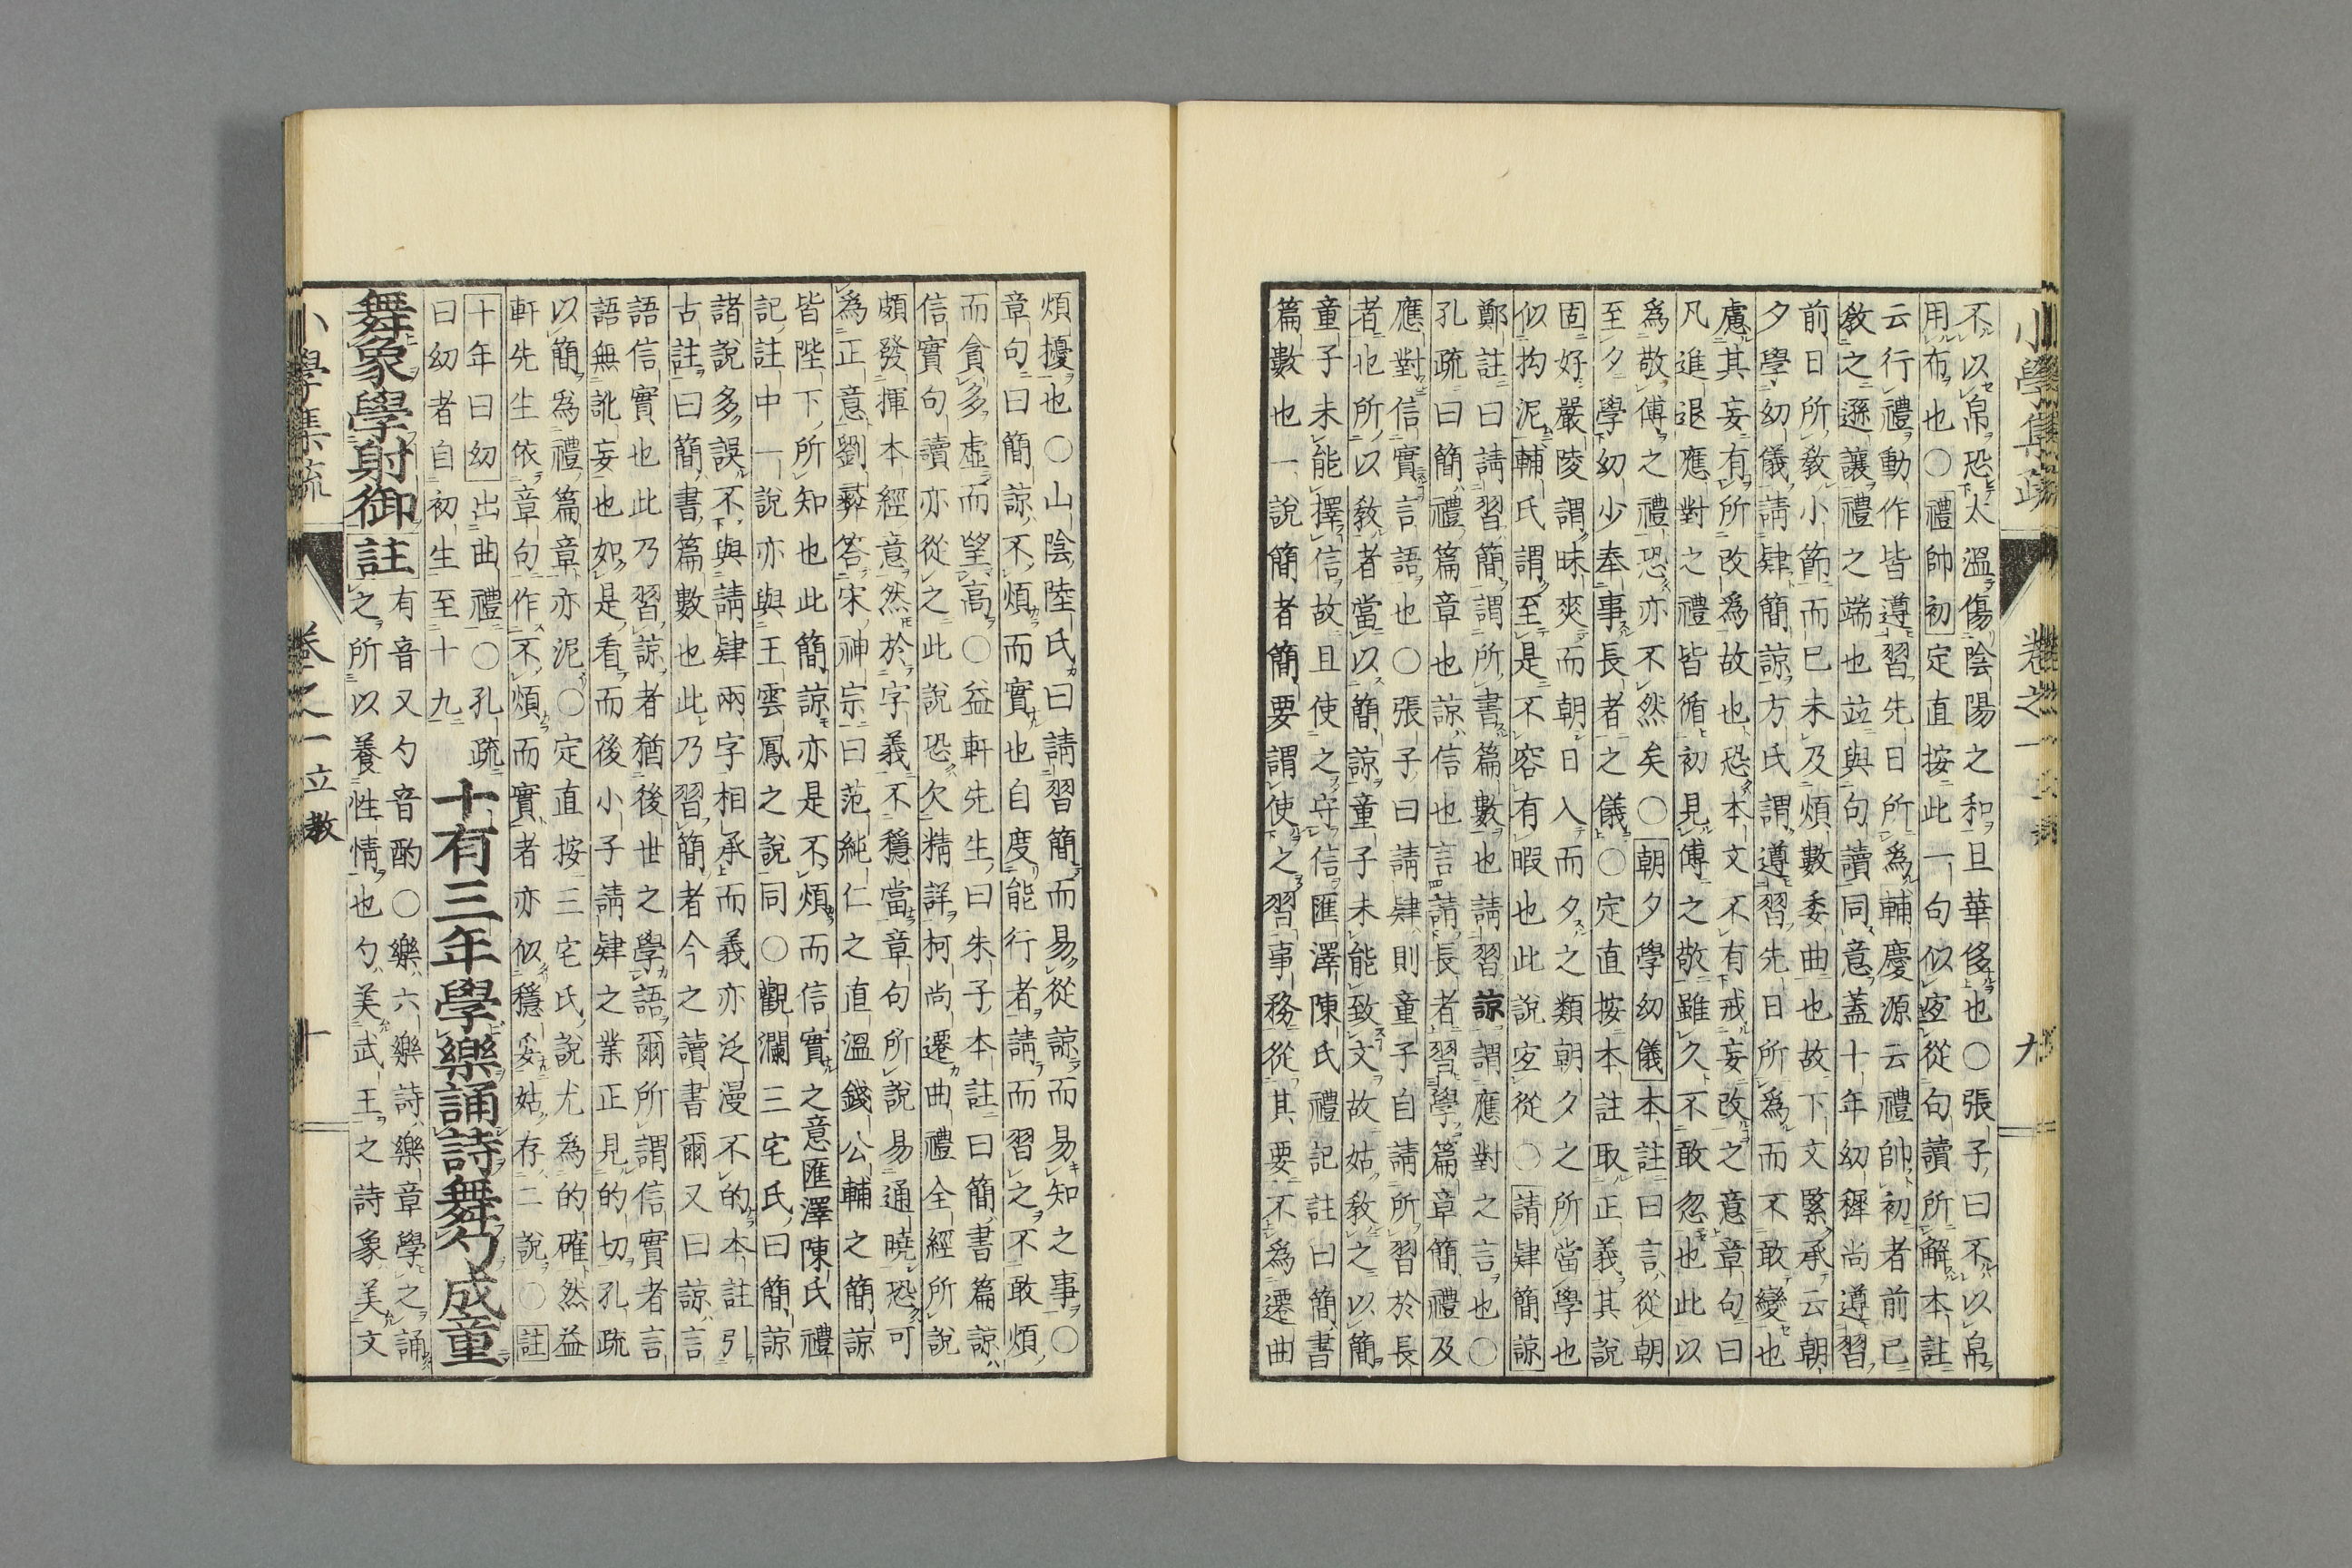 不以帛恐太溫傷陰陽之和且華侈也○張子曰不以帛
用布也○禮帥初定直按此一句似宜從句讀所解本註
云行禮動作皆遵習先日所爲輔慶源云禮帥初者前已
敎之遜讓禮之端也竝與句讀同意蓋十年幼穉尚遵習
前日所敎小節而已未及煩數委曲也故下文緊承云朝
夕學幼儀請肄簡諒方氏謂遵習先日所爲而不敢變也
慮其妄有所改爲故也恐本文不有戒妄改之意章句曰
凡進退應對之禮皆循初見傅之敬雖久不敢忽也此以
爲敬傅之禮恐亦不然矣○朝夕學幼儀本註曰言從朝
至夕學幼少奉事長者之儀○定直按本註取正義其說
固好嚴陵謂昧爽而朝日入而夕之類朝夕之所當學也
似拘泥輔氏謂至是不容有暇也此說宜從○請肄簡諒
鄭註曰請習簡謂所書篇數也請習諒謂應對之言也○
孔疏曰簡禮篇章也諒信也言請長者習學篇章簡禮及
應對信實言語也○張子曰請肄則童子自請所習於長
者也所以敎者當以簡諒童子未能致文故姑敎之以簡
童子未能擇信故且使之守信匯澤陳氏禮記註曰簡書
篇數也一說簡者簡要謂使之習事務從其要不爲遷曲
小學集疏
卷之一
九
煩擾也○山陰陸氏曰請習簡而易從諒而易知之事○
章句曰簡諒不煩而實也自度能行者請而習之不敢煩
而貪多虛而望高○益軒先生曰朱子本註曰簡書篇諒
信實句讀亦從之此說恐欠精詳柯尚遷曲禮全經所說
頗發揮本經意然於字義不穩當章句所說易通曉恐可
爲正意劉彝答宋神宗曰范純仁之直溫錢公輔之簡諒
皆陛下所知也此簡諒亦是不煩而信實之意匯澤陳氏禮
記註中一說亦與王雲鳳之說同○觀瀾三宅氏曰簡諒
諸說多誤不與請肄兩字相承而義亦泛漫不的本註引
古註曰簡書篇數也此乃習簡者今之讀書爾又曰諒言
語信實也此乃習諒者猶後世之學語爾所謂信實者言
語無訛妄也如是看而後小子請肄之業正見的切孔疏
以簡爲禮篇章亦泥○定直按三宅氏說尤爲的確然益
軒先生依章句作不煩而實者亦似穩妥姑存二說○註
十年曰幼出曲禮○孔疏
曰幼者自初生至十九
十有三年學樂誦詩舞勺成童
舞象學射御
註有音又勺音酌○樂六樂詩樂章學之誦
之所以養性情也勺美武王之詩象美文
小學集疏
卷之一 立教
十